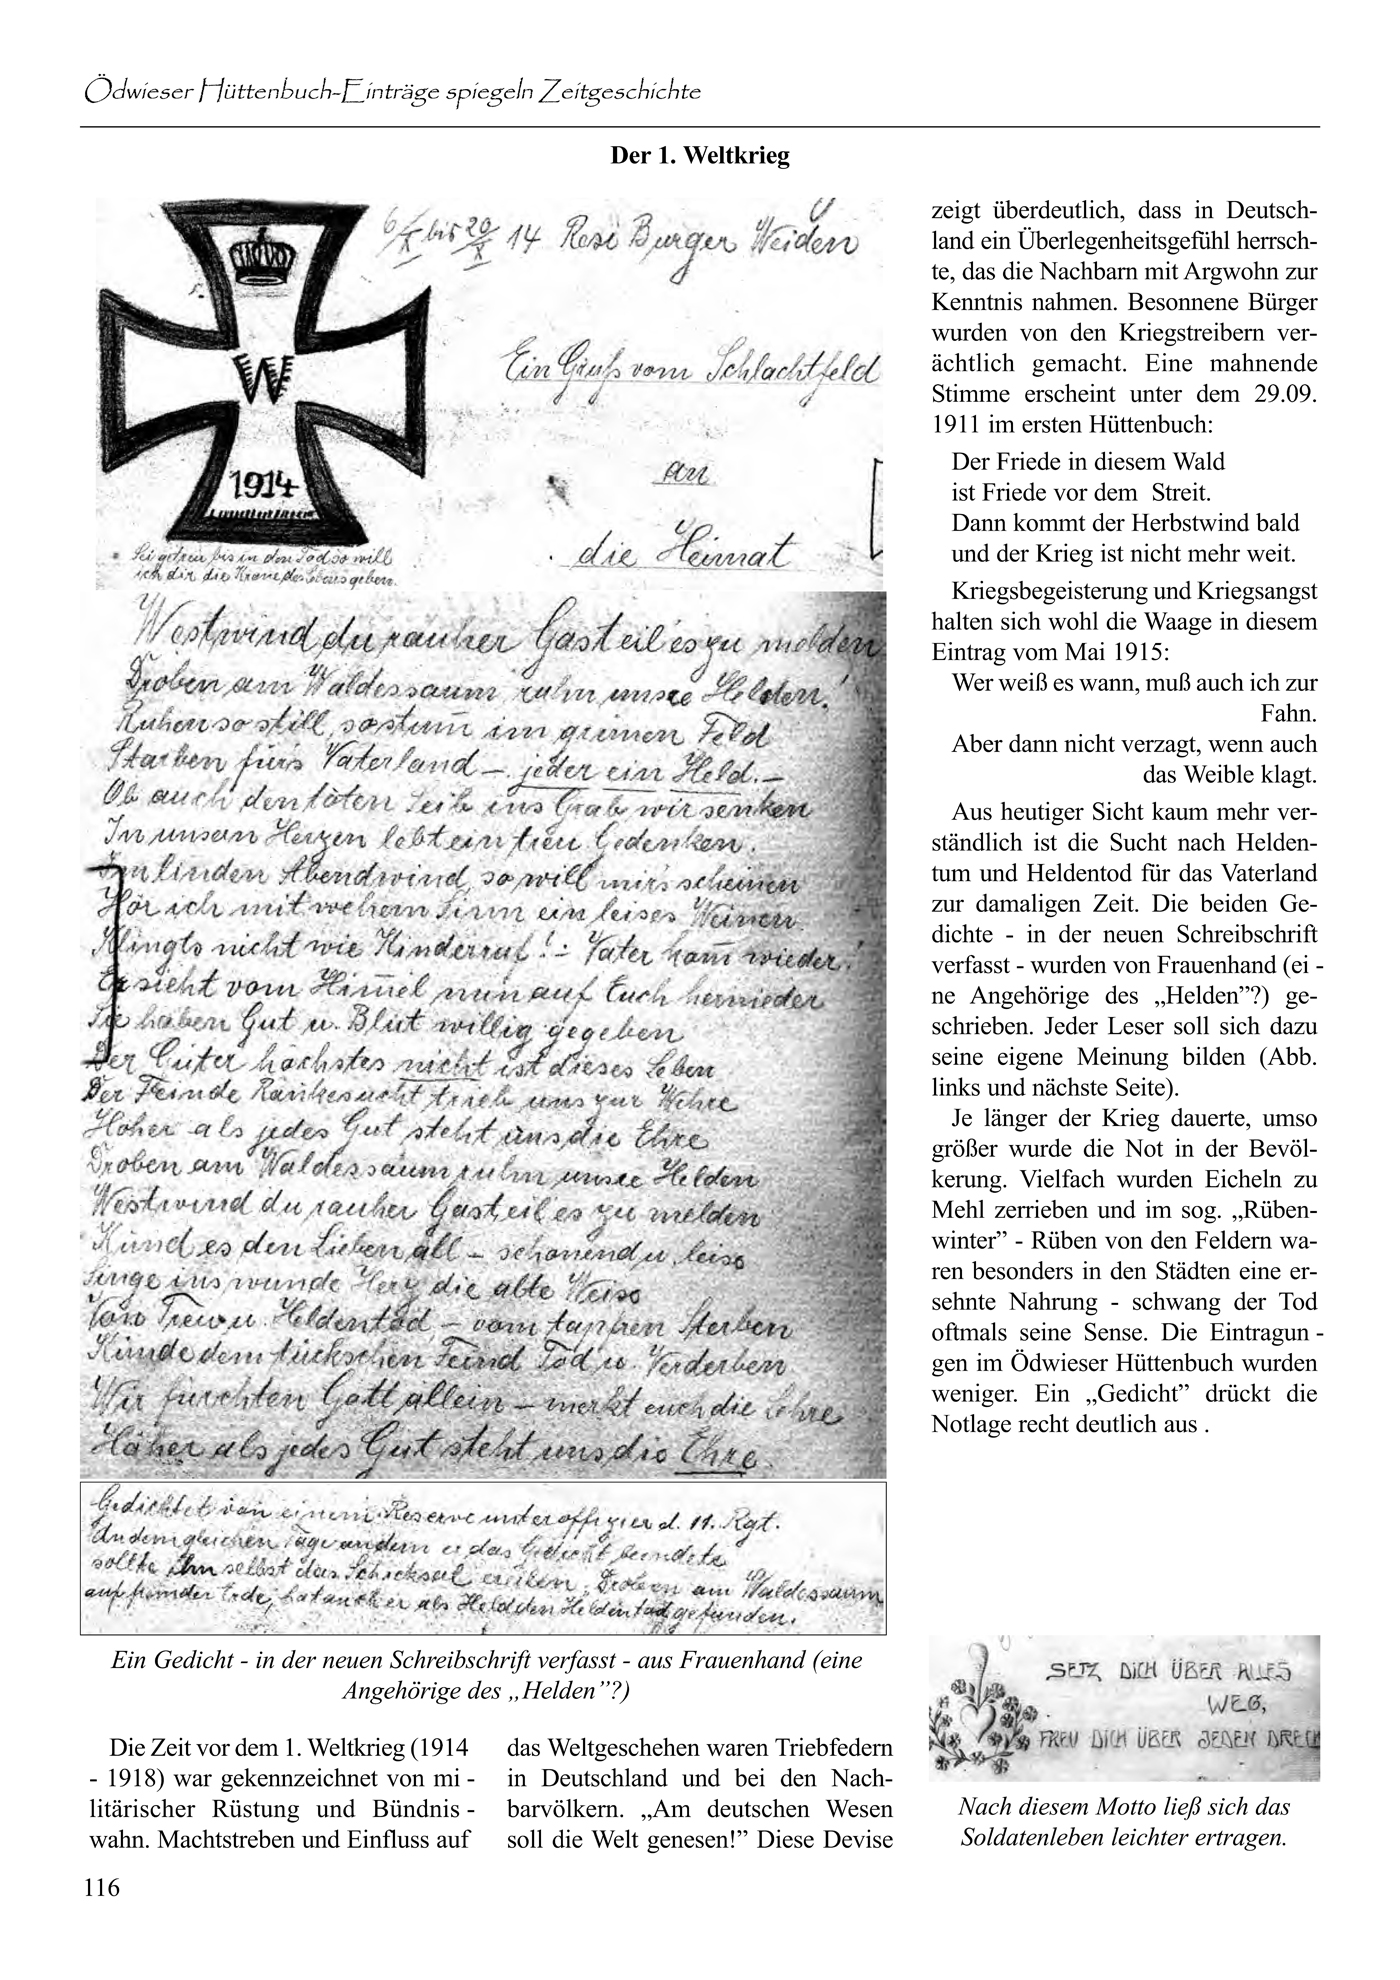 Ödwieser Hüttenbuch-Einträge spiegeln Zeitgeschichte
Der 1. Weltkrieg
6/X bis 20/X 14 Resi Burger Weiden
Ein Gruß vom Schlachtfeld
an
die Heimat
W
1914
Sei getreu bis in den Tod so will
ich dir die Krone des Lebens geben.
Westwind du rauher Gast eil' es zu melden
Droben am Waldessaum ruhn unsre Helden!
Ruhen so still, so stum̄ im grünen Feld
Starben für's Vaterland – jeder ein Held. –
Ob auch den toten Leib ins Grab wir senken
In unsern Herzen lebt ein treu Gedenken.
Im linden Abendwind, so will mir's scheinen
Hör ich mit wehem Sinn ein leises Weinen.
Klingts nicht wie Kinderruf! – Vater kom̄ wieder!
Er sieht vom Him̄el nun auf Euch hernieder
Sie haben Gut u. Blut willig gegeben
Der Güter höchstes nicht ist dieses Leben
Der Feinde Ränkesucht trieb uns zur Wehre
Höher als jedes Gut steht uns die Ehre
Droben am Waldessaum ruhn unsre Helden
Westwind du rauher Gast, eil' es zu melden
Künd es den Lieben all – schonend u. leise
Singe ins wunde Herz die alte Weise
Von Treu u. Heldentod – vom tapfren Sterben
Künde dem tückschen Feind Tod u. Verderben
Wir fürchten Gott allein – merkt euch die Lehre
Höher als jedes Gut steht uns die Ehre.
Gedichtet von einem Reserveunteroffizier d. 11. Rgt.
An dem gleichen Tage an dem er das Gedicht beendete
sollte ihn selbst das Schicksal ereilen; Droben am Waldessaum
auf fremder Erde, hat auch er als Held den Heldentod gefunden.
Ein Gedicht - in der neuen Schreibschrift verfasst - aus Frauenhand (eine
Angehörige des „Helden”?)
Die Zeit vor dem 1. Weltkrieg (1914
- 1918) war gekennzeichnet von mi -
litärischer Rüstung und Bündnis -
wahn. Machtstreben und Einfluss auf
das Weltgeschehen waren Triebfedern
in Deutschland und bei den Nach-
barvölkern. „Am deutschen Wesen
soll die Welt genesen!” Diese Devise
zeigt überdeutlich, dass in Deutsch-
land ein Überlegenheitsgefühl herrsch-
te, das die Nachbarn mit Argwohn zur
Kenntnis nahmen. Besonnene Bürger
wurden von den Kriegstreibern ver-
ächtlich gemacht. Eine mahnende
Stimme erscheint unter dem 29.09.
1911 im ersten Hüttenbuch:
Der Friede in diesem Wald
ist Friede vor dem Streit.
Dann kommt der Herbstwind bald
und der Krieg ist nicht mehr weit.
Kriegsbegeisterung und Kriegsangst
halten sich wohl die Waage in diesem
Eintrag vom Mai 1915:
Wer weiß es wann, muß auch ich zur
Fahn.
Aber dann nicht verzagt, wenn auch
das Weible klagt.
Aus heutiger Sicht kaum mehr ver-
ständlich ist die Sucht nach Helden-
tum und Heldentod für das Vaterland
zur damaligen Zeit. Die beiden Ge-
dichte - in der neuen Schreibschrift
verfasst - wurden von Frauenhand (ei -
ne Angehörige des „Helden”?) ge-
schrieben. Jeder Leser soll sich dazu
seine eigene Meinung bilden (Abb.
links und nächste Seite).
Je länger der Krieg dauerte, umso
größer wurde die Not in der Bevöl-
kerung. Vielfach wurden Eicheln zu
Mehl zerrieben und im sog. „Rüben-
winter” - Rüben von den Feldern wa-
ren besonders in den Städten eine er-
sehnte Nahrung - schwang der Tod
oftmals seine Sense. Die Eintragun -
gen im Ödwieser Hüttenbuch wurden
weniger. Ein „Gedicht” drückt die
Notlage recht deutlich aus .
SETZ DICH ÜBER ALLES
WEG,
FREU DICH ÜBER JEDEN DRECK
Nach diesem Motto ließ sich das
Soldatenleben leichter ertragen.
116